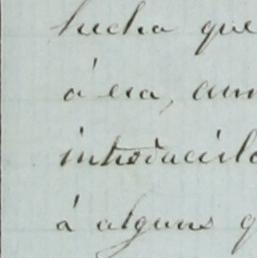 lucha que
á esa, aun
introducirlo
á algunos q